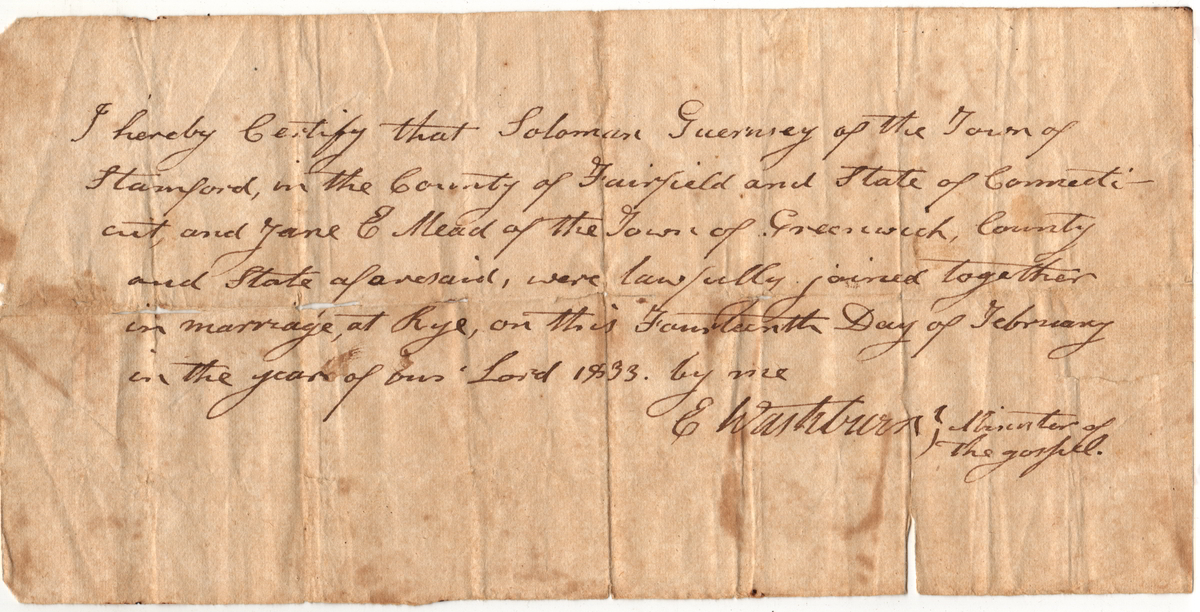 I hereby Certify that Soloman Guernsey of the Town of
Stamford, in the County of Fairfield and State of Connecti-
cut, and Jane E Mead of the Town of Greenwich, County
and State aforesaid, were lawfully joined together
in marriage, at Rye, on this Fourteenth Day of February
in the year of our Lord 1833. by me
E Washburn } Minister of
the gospel.